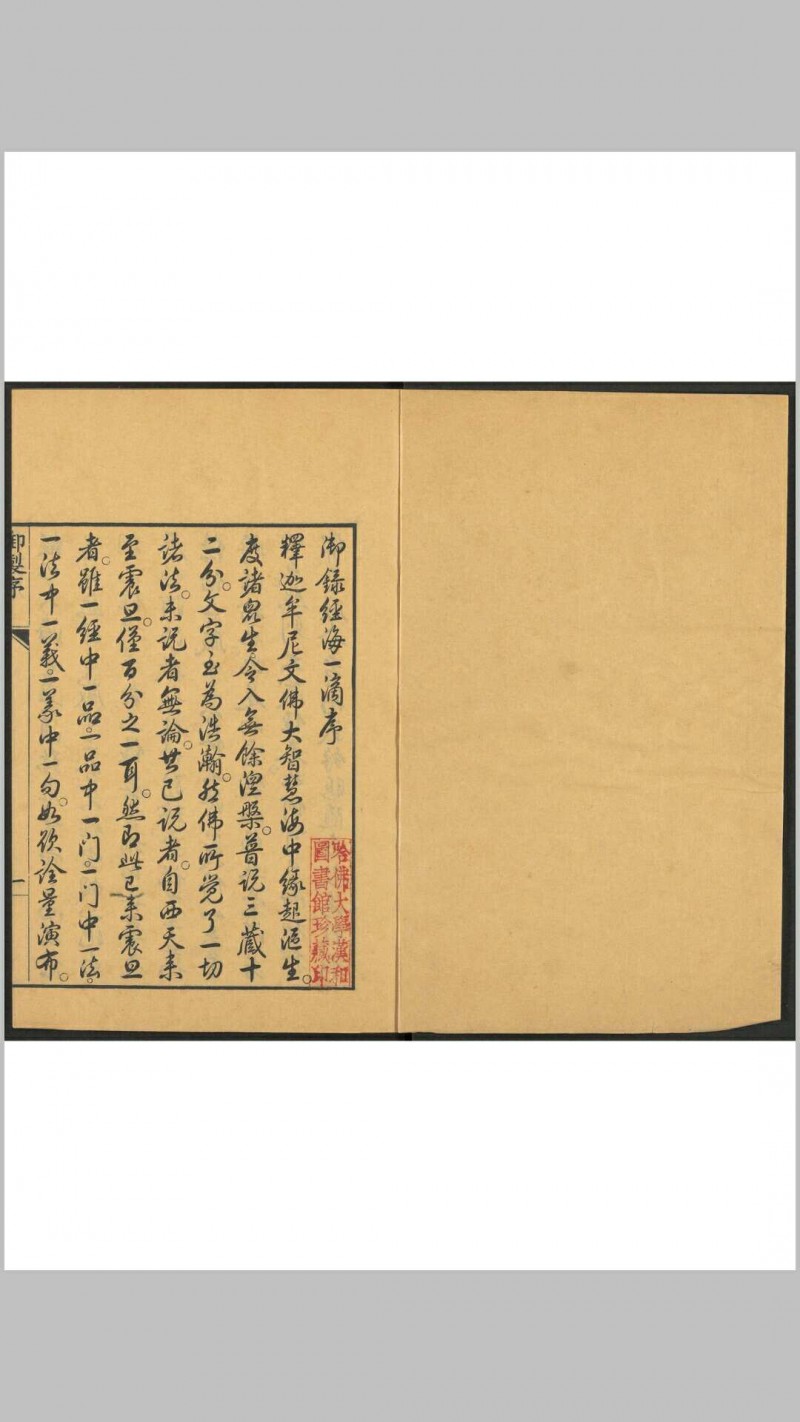 御錄經海一滴序
釋迦牟尼文佛大智慧海中緣起漚生。
度諸眾生令入無餘涅槃。普說三藏十
二分。文字至為浩瀚。然佛所覺了一切
諸法。未說者無論。其已說者。自西天來
至震旦。僅百分之一耳。然即此已來震旦
者。雖一經中一品。一品中一门。一门中一法。
一法中一義。一義中一句。如欲詮量演布。
御製序
一
哈佛大學漢和
圖書館珍藏印